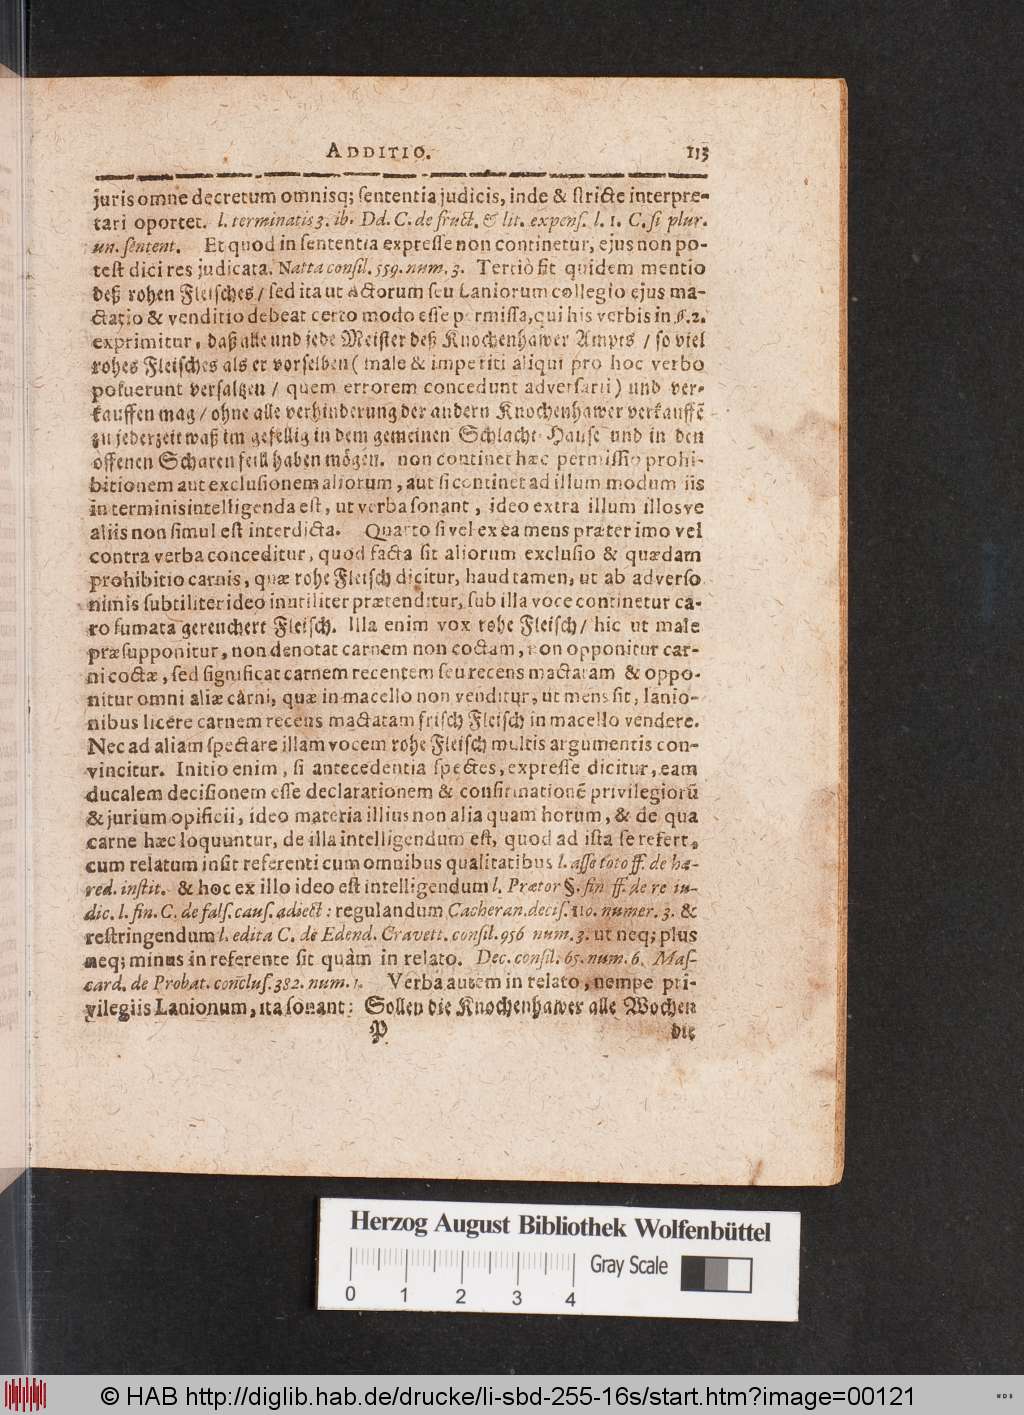 ADDITIO. 113
juris omne decretum omnisq; sententia judicis, inde & stricte interpre-
tari oportet. l. terminatis 3. ib. Dd. C. de fruct. & lit. expens. l. 1. C. si plur.
un. sentent. Et quod in sententia expresse non continetur, ejus non po-
test dici res judicata. Natta consil. 559. num. 3. Tertiò fit quidem mentio
deß rohen Fleisches / sed ita ut actorum seu Laniorum collegio ejus ma-
ctatio & venditio debeat certo modo esse permissa, qui his verbis in §. 2.
exprimitur, daß alle und jede Meister deß Knochenhawer Ampts / so viel
rohes Fleisches als er vorselben ( male & imperiti aliqui pro hoc verbo
posuerunt versaltzen / quem errorem concedunt adversarii ) und ver-
kauffen mag / ohne alle verhinderung der andern Knochenhawer verkauffẽ
zu jederzeit waß im gefellig in dem gemeinen Schlacht-Hause und in den
offenen Scharen feill haben mögen. non continet hæc permissio prohi-
bitionem aut exclusionem aliorum, aut si continet ad illum modum iis
in terminis intelligenda est, ut verba sonant, ideo extra illum illosve
aliis non simul est interdicta. Quarto si vel ex ea mens præter imo vel
contra verba conceditur, quod facta sit aliorum exclusio & quædam
prohibitio carnis, quæ rohe Fleisch dicitur, haud tamen, ut ab adverso
nimis subtiliter ideo inutiliter prætenditur, sub illa voce continetur ca-
ro fumata gereuchert Fleisch. Illa enim vox rohe Fleisch / hic ut male
præsupponitur, non denotat carnem non coctam, non opponitur car-
ni coctæ, sed significat carnem recentem seu recens mactatam & oppo-
nitur omni aliæ carni, quæ in macello non venditur, ut mens sit, lanio-
nibus licere carnem recens mactatam frisch Fleisch in macello vendere.
Nec ad aliam spectare illam vocem rohe Fleisch multis argumentis con-
vincitur. Initio enim, si antecedentia spectes, expresse dicitur, eam
ducalem decisionem esse declarationem & confirmationẽ privilegiorũ
& jurium opificii, ideo materia illius non alia quam horum, & de qua
carne hæc loquuntur, de illa intelligendum est, quod ad ista se refert,
cum relatum insit referenti cum omnibus qualitatibus l. asse toto ff. de hæ-
red. instit. & hoc ex illo ideo est intelligendum l. Prætor §. fin ff. de re iu-
dic. l. fin. C. de fals. caus. adiect : regulandum Cacheran. decis. 110. numer. 3. &
restringendum l. edita C. de Edend. Cravett. consil. 956 num. 3. ut neq; plus
neq; minus in referente sit quàm in relato. Dec. consil. 65. num. 6. Mas-
card. de Probat. conclus. 382. num. 1. Verba autem in relato, nempe pri-
vilegiis Lanionum, ita sonant: Sollen die Knochenhawer alle Wochen
P die
Herzog August Bibliothek Wolfenbüttel
Gray Scale
0 1 2 3 4
© HAB http://diglib.hab.de/drucke/li-sbd-255-16s/start.htm?image=00121
WDB